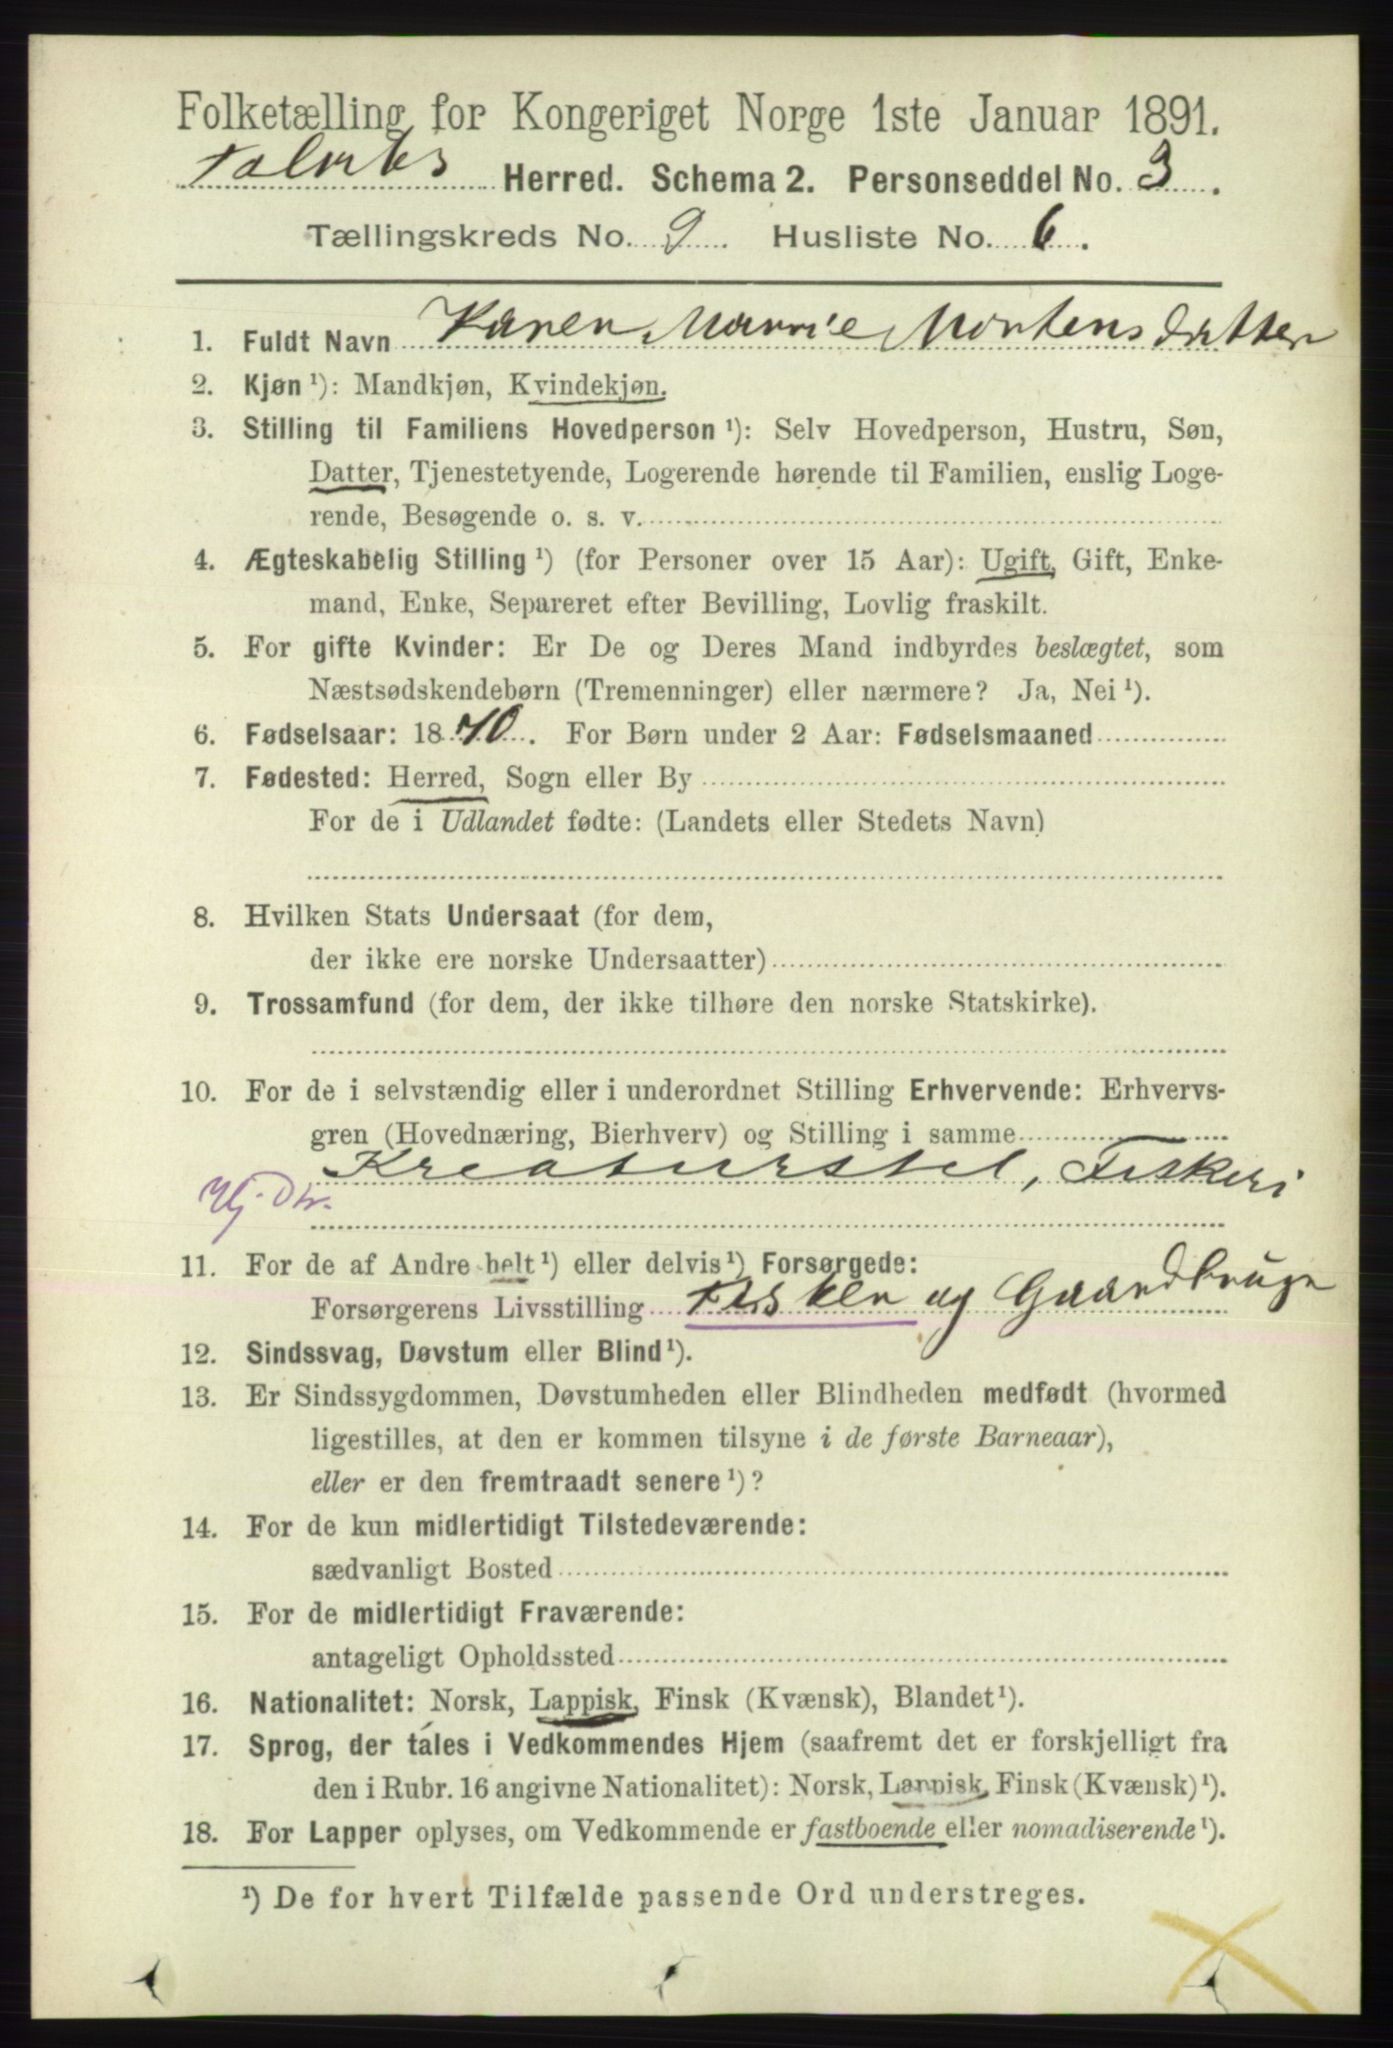 Folketælling for Kongeriget Norge 1ste Januar 1891.
Herred. Schema 2. Personseddel No. 3.
Tællingskreds No. 9. Husliste No. 6.
1. Fuldt Navn Karen Marie Mortensdatter
2. Kjøn ¹): Mandkjøn, Kvindekjøn.
3. Stilling til Familiens Hovedperson ¹): Selv Hovedperson, Hustru, Søn,
Datter, Tjenestetyende, Logerende hørende til Familien, enslig Loge-
rende, Besøgende o. s. v.
4. Ægteskabelig Stilling ¹) (for Personer over 15 Aar): Ugift, Gift, Enke-
mand, Enke, Separeret efter Bevilling, Lovlig fraskilt.
5. For gifte Kvinder: Er De og Deres Mand indbyrdes beslægtet, som
Næstsødskendebørn (Tremenninger) eller nærmere? Ja, Nei ¹).
6. Fødselsaar: 1870. For Børn under 2 Aar: Fødselsmaaned
7. Fødested: Herred, Sogn eller By
For de i Udlandet fødte: (Landets eller Stedets Navn)
8. Hvilken Stats Undersaat (for dem,
der ikke ere norske Undersaatter)
9. Trossamfund (for dem, der ikke tilhøre den norske Statskirke).
10. For de i selvstændig eller i underordnet Stilling Erhvervende: Erhvervs-
gren (Hovednæring, Bierhverv) og Stilling i samme
Kreaturstel, Fiskeri
11. For de af Andre helt ¹) eller delvis ¹) Forsørgede:
Forsørgerens Livsstilling Fisker og Gaardbruger
12. Sindssvag, Døvstum eller Blind ¹).
13. Er Sindssygdommen, Døvstumheden eller Blindheden medfødt (hvormed
ligestilles, at den er kommen tilsyne i de første Barneaar),
eller er den fremtraadt senere ¹)?
14. For de kun midlertidigt Tilstedeværende:
sædvanligt Bosted
15. For de midlertidigt Fraværende:
antageligt Opholdssted
16. Nationalitet: Norsk, Lappisk, Finsk (Kvænsk), Blandet ¹).
17. Sprog, der tales i Vedkommendes Hjem (saafremt det er forskjelligt fra
den i Rubr. 16 angivne Nationalitet): Norsk, Lappisk, Finsk (Kvænsk) ¹).
18. For Lapper oplyses, om Vedkommende er fastboende eller nomadiserende ¹).
¹) De for hvert Tilfælde passende Ord understreges.